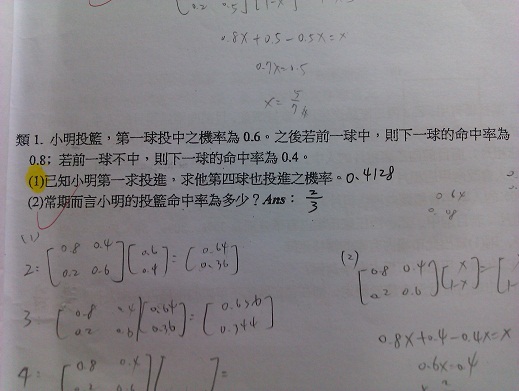 0.2 0.5 1-x
0.8x+0.5-0.5x=x
0.7x=0.5
x=5/7
類 1. 小明投籃，第一球投中之機率為 0.6。之後若前一球中，則下一球的命中率為
0.8；若前一球不中，則下一球的命中率為 0.4。
(1)已知小明第一求投進，求他第四球也投進之機率。0.4128
(2)常期而言小明的投籃命中率為多少？Ans： 2/3
0.6x
(1)
2: [0.8 0.4
0.2 0.6] [0.6
0.4] = [0.64
0.36]
3 [0.8 0.4
0.2 0.6] [0.64
0.36] = [0.656
0.344]
4: [0.8 0.4
] [ ] =
(2)
[0.8 0.4
0.2 0.6] [x
1-x] = [
0.8x+0.4-0.4x=x
0.6x=0.4